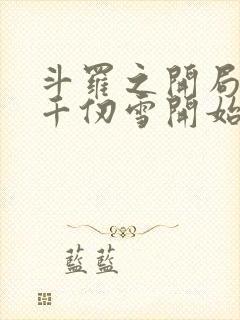 斗羅之開局
千仞雪開始
藍藍